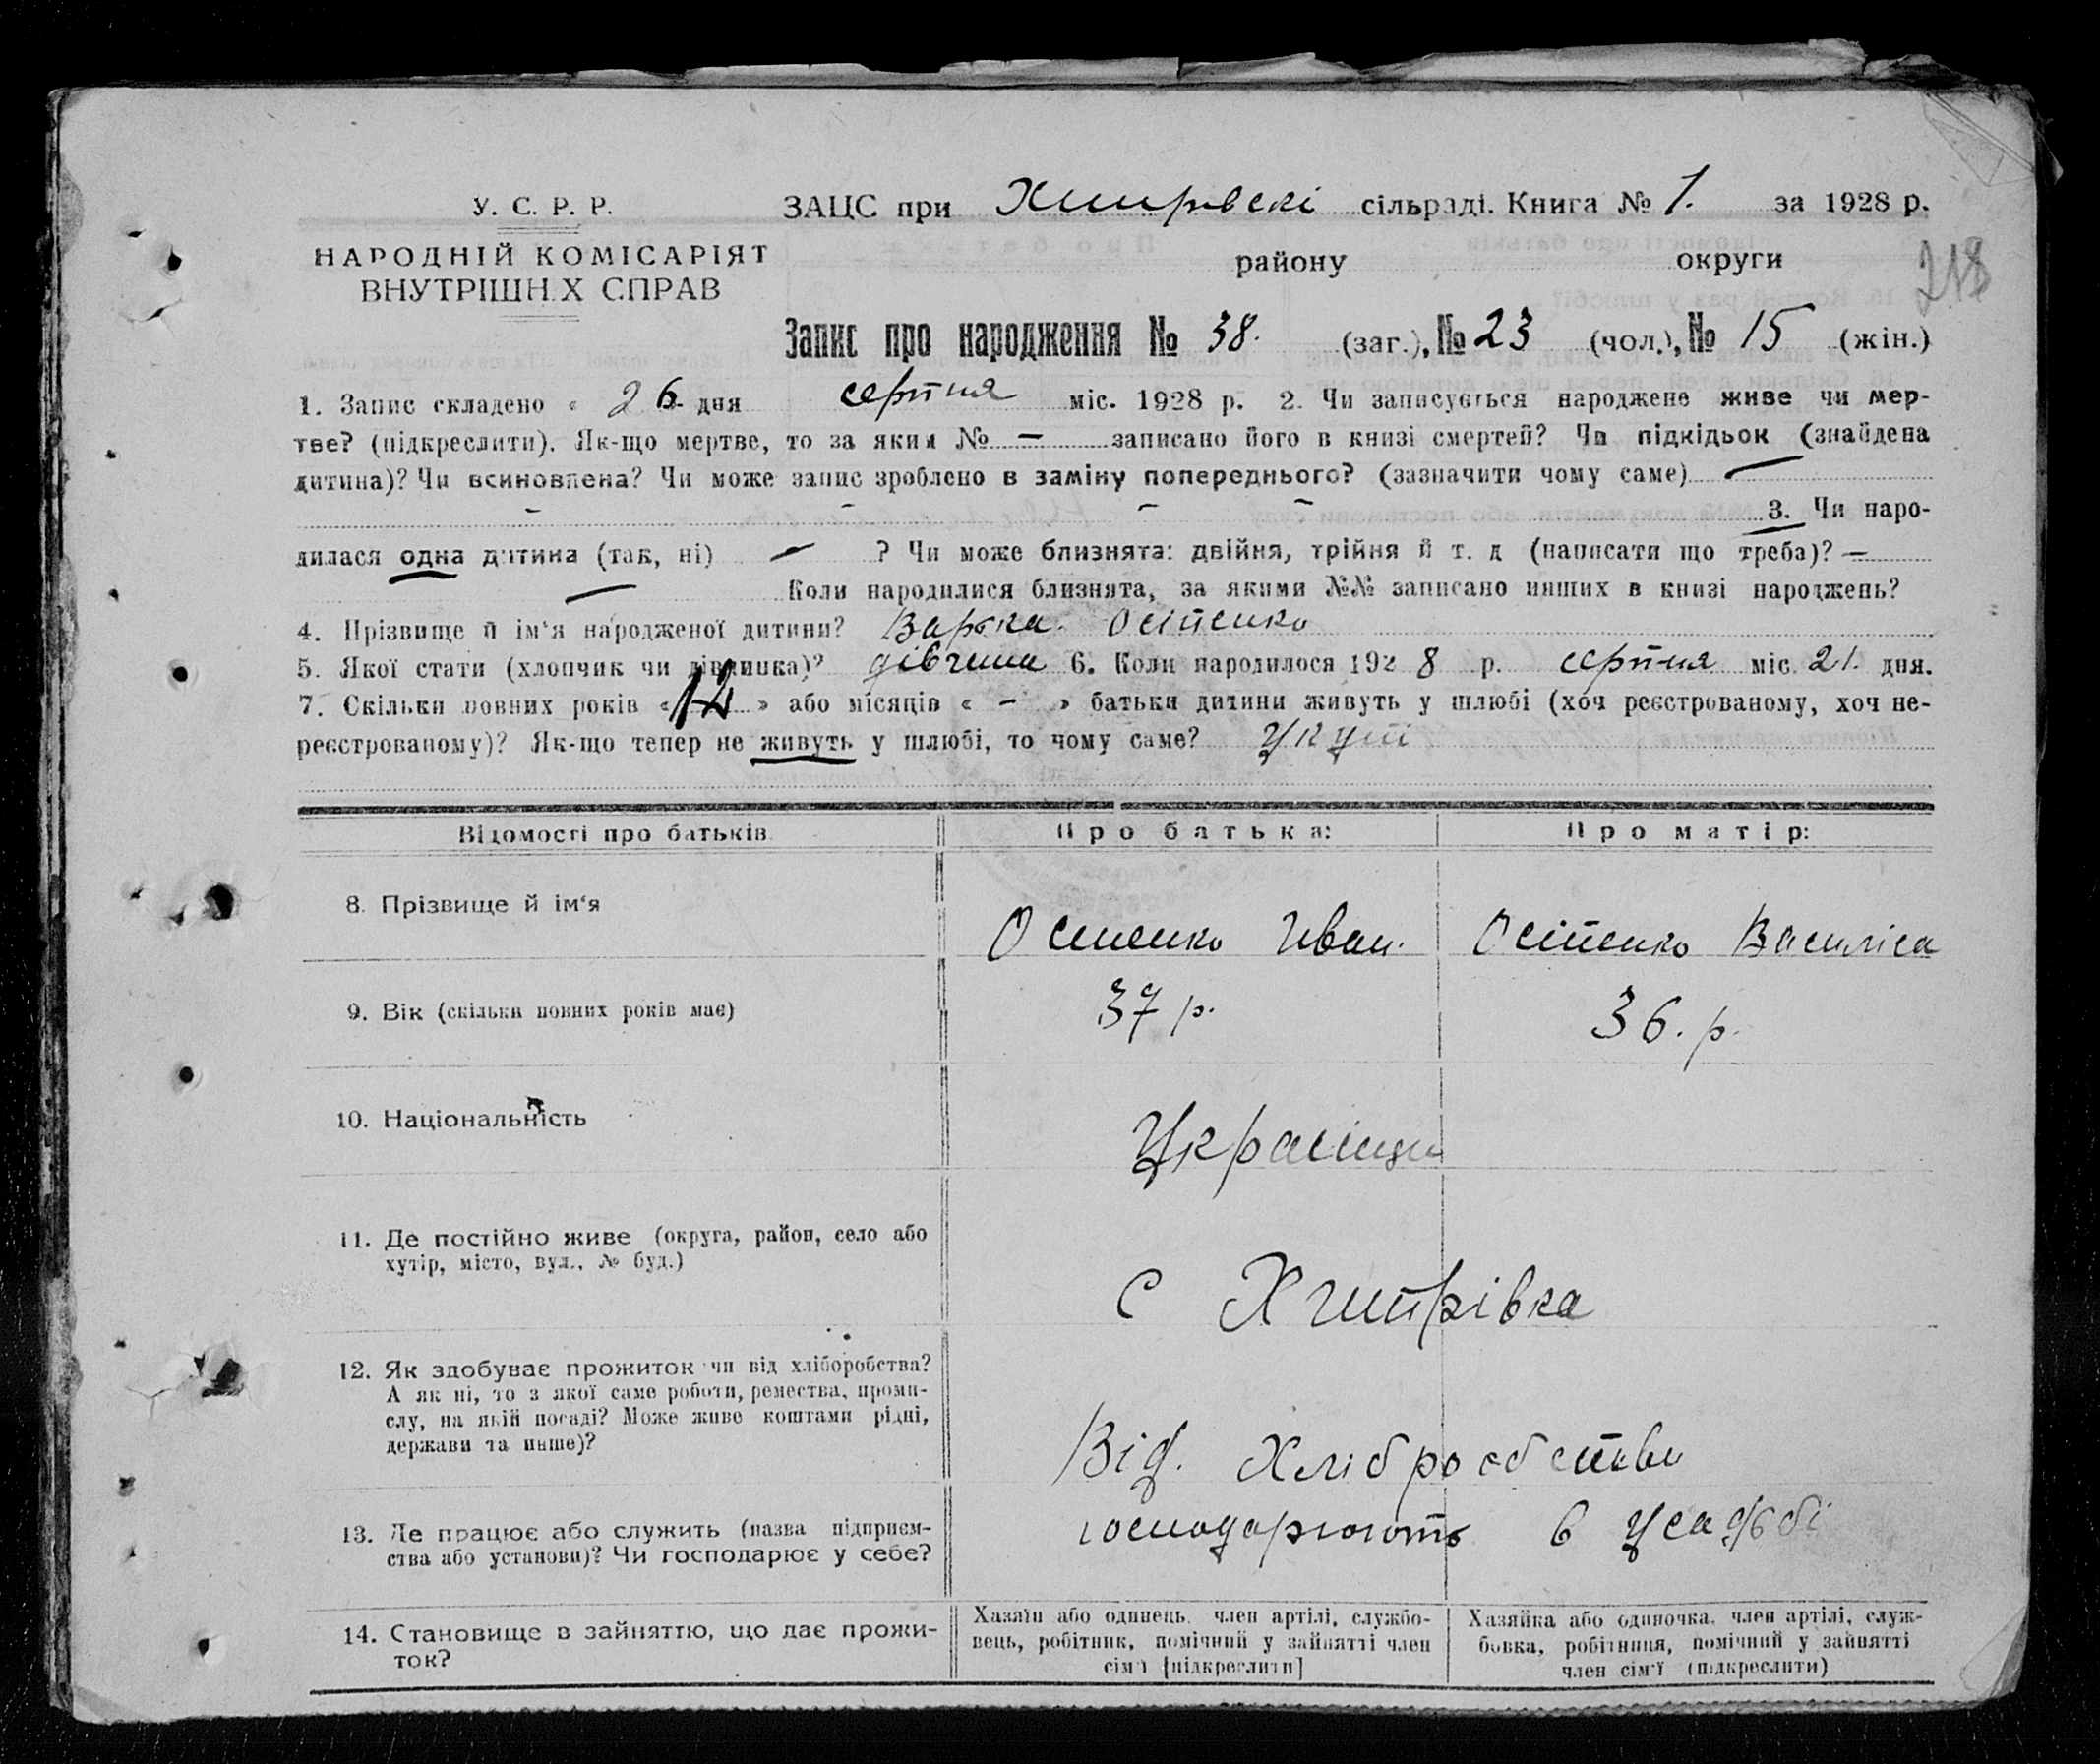 У. С. Р. Р.
НАРОДНІЙ КОМІСАРІЯТ
ВНУТРІШНІХ СПРАВ
ЗАЦС при Хитрівскі сільраді. Книга № 1. за 1928 р.
району округи
218
Запис про народження № 38. (заг.), № 23 (чол.), № 15 (жін.)
1. Запис складено « 26 » дня серпня міс. 1928 р. 2. Чи записується народжене живе чи мер-
тве? (підкреслити). Як-що мертве, то за яким № — записано його в книзі смертей? Чи підкідьок (знайдена
дитина)? Чи всиновлена? Чи може запис зроблено в заміну попереднього? (зазначити чому саме) —
— — — — 3. Чи наро-
дилася одна дитина (так, ні) — ? Чи може близнята: двійня, трійня й т. д (написати що треба)? —
— Коли народилися близнята, за якими №№ записано инших в книзі народжень?
4. Прізвище й ім‘я народженої дитини? Варька. Осіпенко
5. Якої стати (хлопчик чи дівчинка)? дівчина 6. Коли народилося 192 8 р. серпня міс. 21. дня.
7. Скільки повних років « 12 » або місяців « - » батьки дитини живуть у шлюбі (хоч реєстрованому, хоч не-
реєстрованому)? Як-що тепер не живуть у шлюбі, то чому саме?
Відомості про батьків
Про батька:
Про матір:
8. Прізвище й ім‘я
Осипенко Иван.
Осіпенко Василіса
9. Вік (скільки повних років має)
37 р.
36. р.
10. Національність
Украінци
11. Де постійно живе (округа, район, село або
хутір, місто, вул., № буд.)
с Хитрівка
12. Як здобуває прожиток чи від хліборобства?
А як ні, то з якої саме роботи, ремества, проми-
слу, на якій посаді? Може живе коштами рідні,
держави та инше)?
Від. Хлібробства
13. Де працює або служить (назва підприєм-
ства або установи)? Чи господарює у себе?
господарюють в усадьбі
14. Становище в зайняттю, що дає прожи-
ток?
Хазяїн або одинець, член артілі, службо-
вець, робітник, помічний у зайнятті член
сім‘ї [підкреслити]
Хазяйка або одиночка, член артілі, служ-
бовка, робітниця, помічний у зайнятті
член сім‘ї (підкреслити)